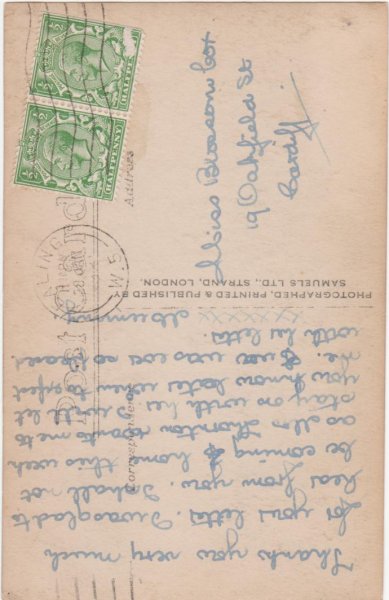 Post Card
Correspondence
Address
PHOTOGRAPHED, PRINTED & PUBLISHED BY
SAMUELS LTD., STRAND, LONDON.
HALF PENNY
HALF PENNY
EALING
W.5
Miss Blossom Cox
19 Oakfield St
Cardiff
Thanks you very much
for your letter. I was glad to
hear from you. I shall not
be coming this week
as Mrs Thornton wants me to
stay on with her will let
you know later when to expect
me. was so
with his letter
xxxxxxx